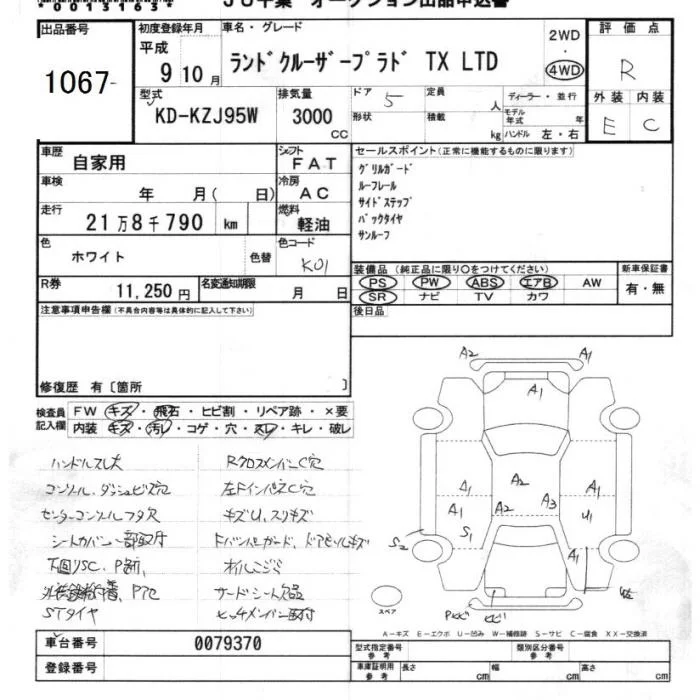 00131634
JU千葉 オークション出品申込書
出品番号
1067
初度登録年月
平成
9年10月
車名・グレード
ランドクルーザープラド TX LTD
2WD
・
4WD
評価点
R
型式
KD-KZJ95W
排気量
3000
CC
ドア
5
定員
人
形状
積載
kg
ディーラー・並行
モデル年式
年
ハンドル 左・右
外装 内装
E C
車歴
自家用
シフト
FAT
車検
年 月( 日)
冷房
AC
走行
21万8千790 km
燃料
軽油
色
ホワイト
色替
色コード
K01
R券
11,250円
名変通知期限
月 日
セールスポイント(正常に機能するものに限ります)
グリルガード
ルーフレール
サイドステップ
バックタイヤ
サンルーフ
装備品(純正品に限り○をつけてください)
PS PW ABS エアB AW
SR ナビ TV カワ
新車保証書
有・無
後日品
注意事項申告欄(不具合内容等は具体的に記入して下さい)
修復歴 有〔箇所 〕
検査員記入欄
FW キズ・飛石・ヒビ割・リペア跡・×要
内装 キズ・汚レ・コゲ・穴・スレ・キレ・破レ
ハンドルスレ大
コンソール、ダッシュビス穴
センターコンソールフタ欠
シートカバー一部取付
下回りSC、P割
STタイヤ
RクロスメンバーC穴
左FインパネC穴
キズU、スリキズ
Fバンパーガード、ドアモールキズ
オイルニジミ
サードシート欠品
ヒッチメンバー取付
A2
A1
A1
A1
A1
A2
A2
A3
A1
U1
S1
S2
A1
スペア
A－キズ E－エクボ U－凹み W－補修跡 S－サビ C－腐食 XX－交換済
車台番号
0079370
登録番号
型式指定番号
参考
類別区分番号
参考
車庫証明用
参考
長さ cm 幅 cm 高さ cm